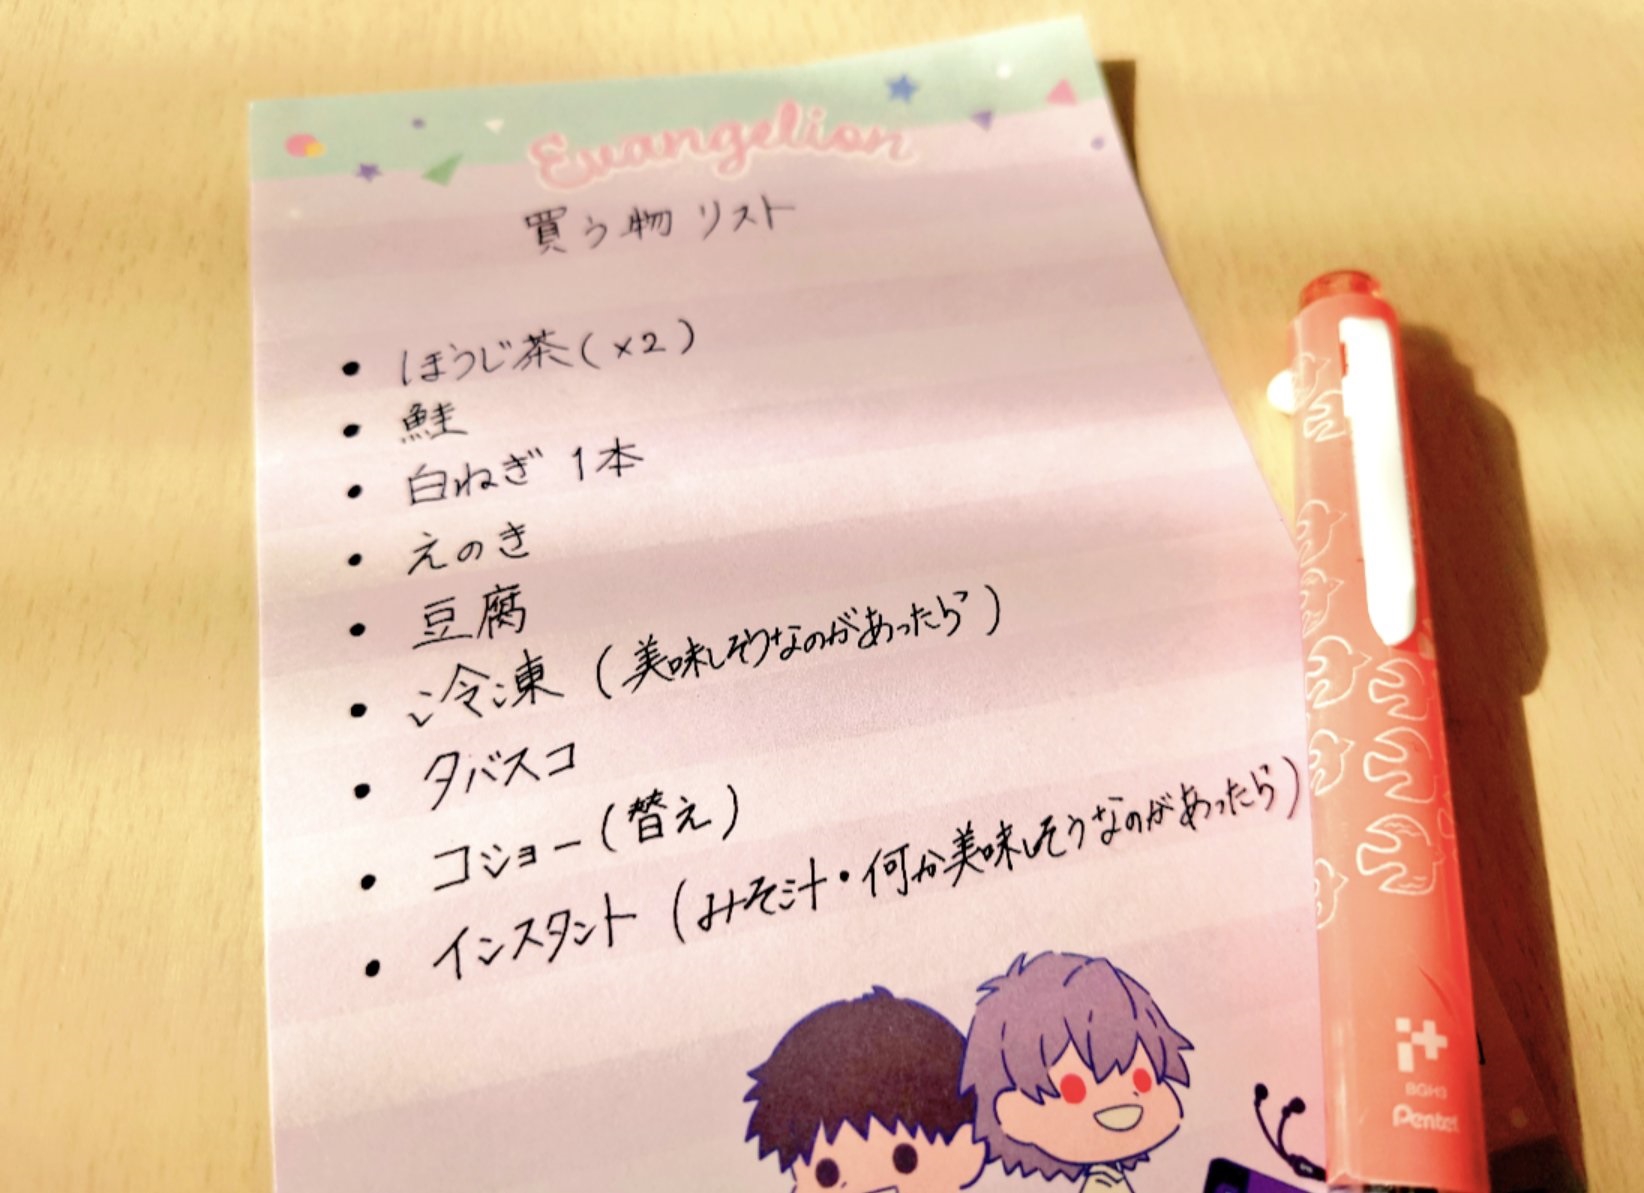 Evangelion
買う物リスト
• ほうじ茶(×2)
• 鮭
• 白ねぎ 1本
• えのき
• 豆腐
• 冷凍 (美味しそうなのがあったら)
• タバスコ
• コショー(替え)
• インスタント (みそ汁・何か美味しそうなのがあったら)
i+
BGH3
Pentel